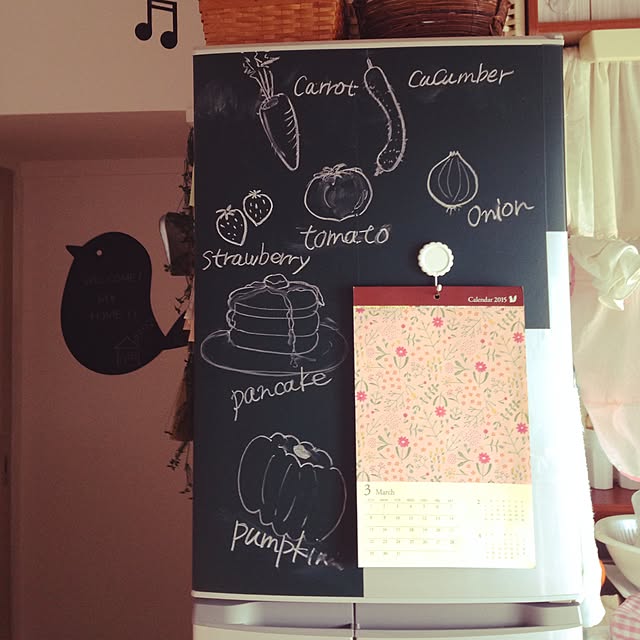 Carrot
CuCumber
Onion
tomato
strawberry
pancake
pumpkin
WELCOME!
MY
HOME!!
Calendar 2015
3 March